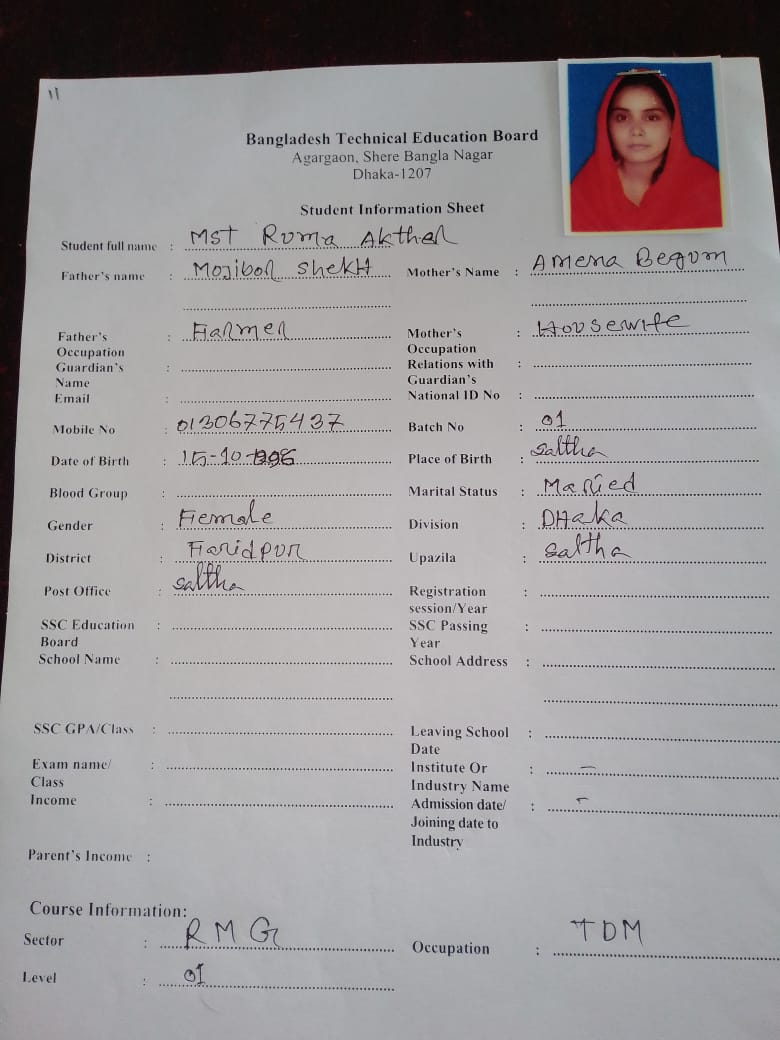 11
Bangladesh Technical Education Board
Agargaon, Shere Bangla Nagar
Dhaka-1207
Student Information Sheet
Student full name : MST Roma Akther
Father's name : Mojibor Shekh Mother's Name : Amena Begom
Father's Occupation : Farmer Mother's Occupation : Housewife
Guardian's Name : Relations with Guardian's :
Email : National ID No :
Mobile No : 01306775437 Batch No : 01
Date of Birth : 15-10-1996 Place of Birth : Saltha
Blood Group : Marital Status : Maried
Gender : Female Division : DHaka
District : Faridpur Upazila : Saltha
Post Office : Saltha Registration session/Year :
SSC Education Board : SSC Passing Year :
School Name : School Address :
SSC GPA/Class : Leaving School Date :
Exam name/ Class : Institute Or Industry Name : —
Income : Admission date/ Joining date to Industry : –
Parent's Income :
Course Information:
Sector : RMG Occupation : TDM
Level : 01